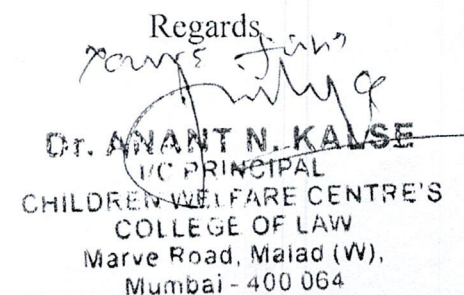 Regards
Dr. ANANT N. KALSE
I/C PRINCIPAL
CHILDREN WELFARE CENTRE'S
COLLEGE OF LAW
Marve Road, Malad (W),
Mumbai - 400 064